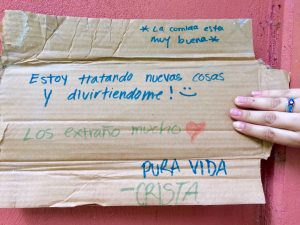 *La comida esta
muy buena*
Estoy tratando nuevas cosas
y divirtiendome! :)
Los extraño mucho ♥
PURA VIDA
-CRISTA